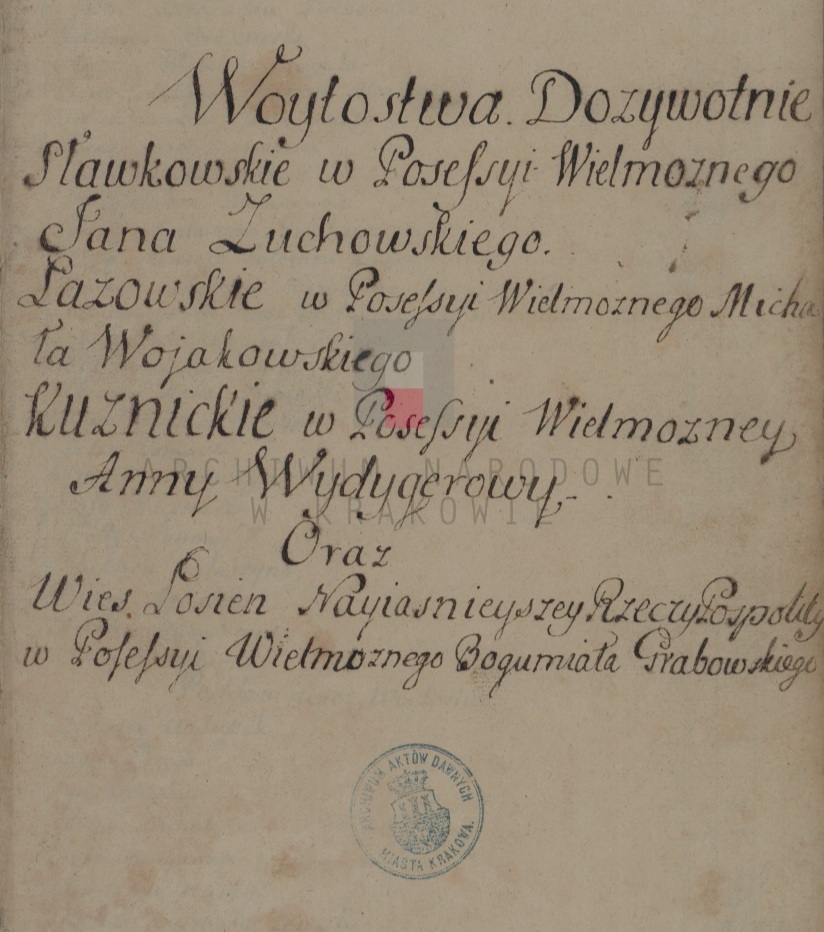 Woytostwa. Dozywotnie
Sławkowskie w Posefsyi Wielmoznego
Jana Zuchowskiego.
Łazowskie w Posefsyi Wielmoznego Micha
ła Wojakowskiego
Kuznickie w Posefsyi Wielmozney
Anny Wydygerowy.
Oraz
Wies Łosien Nayiasnieyszey RzeczyPospolity
w Posefsyi Wielmoznego Bogumiała Grabowskiego
ARCHIWUM NARODOWE
W KRAKOWIE
ARCHIWUM AKTÓW DAWNYCH
MIASTA KRAKOWA.